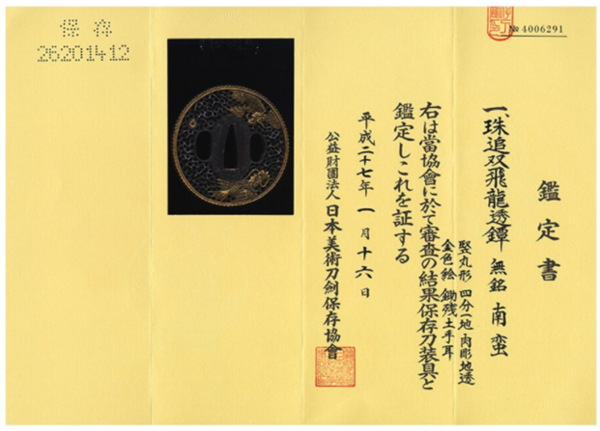 保存
26201412
№ 4006291
鑑定書
一、珠追双飛龍透鐔 無銘 南蛮
竪丸形 四分一地 肉彫地透
金色絵 鋤残土手耳
右は當協會に於て審査の結果保存刀装具と
鑑定しこれを証する
平成二十七年一月十六日
公益財團法人 日本美術刀劍保存協會